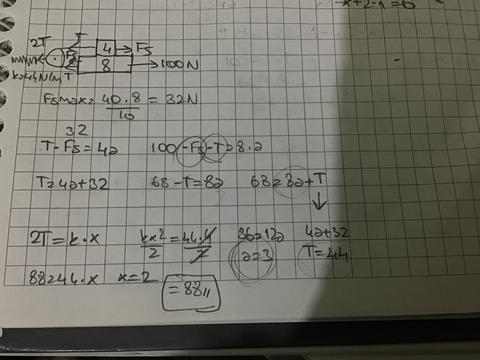 -x+2-1=0
2T T 4 Fs
8 100N
k=44N/m T
Fsmax= 40.8/10 = 32N
32
T-Fs=4a 100-Fs-T=8.a
T=4a+32 68-T=8a 68=8a+T
2T=k.x kx2/2=44.4/2 36=12a 4a+32
88=44.x x=2 =88 a=3 T=44